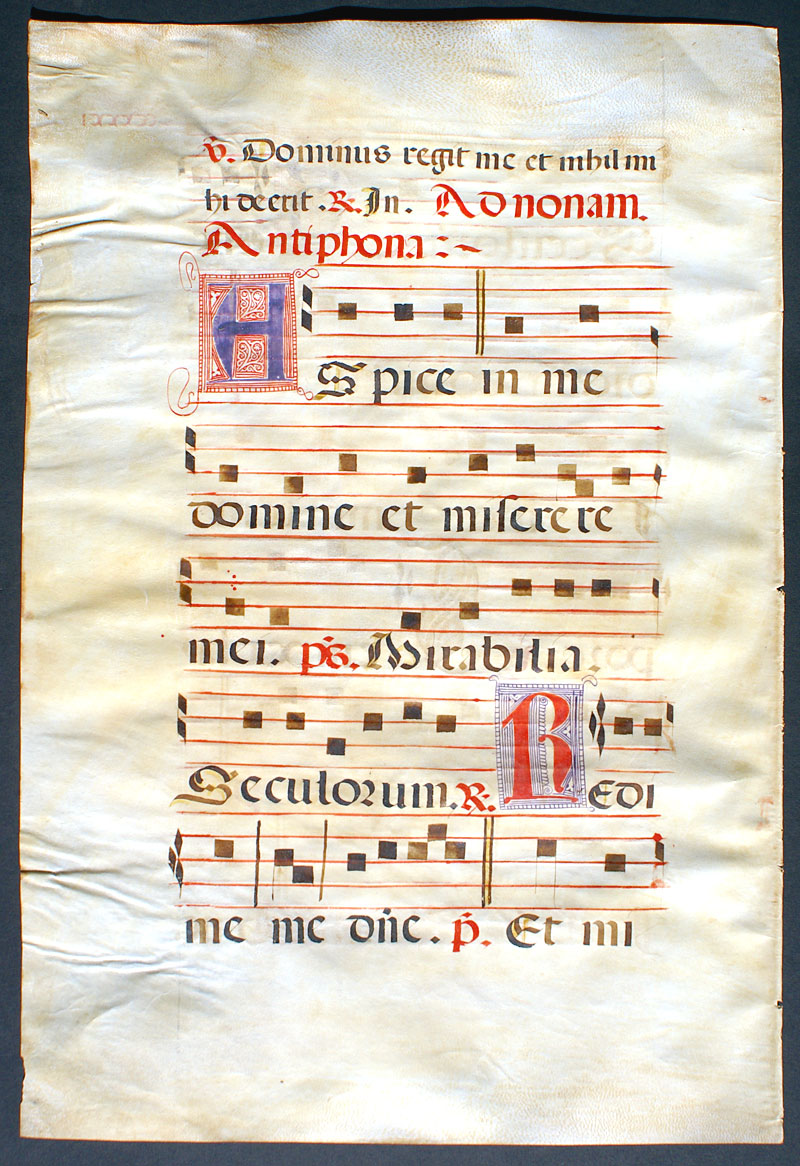 v. Dominus regit me et nihil mi
hi deerit . R. In. Ad nonam.
Antiphona :~
ASpice in me
domine et miserere
mei. ps. Mirabilia.
Seculorum. R. Redi
me me dñe. p. Et mi